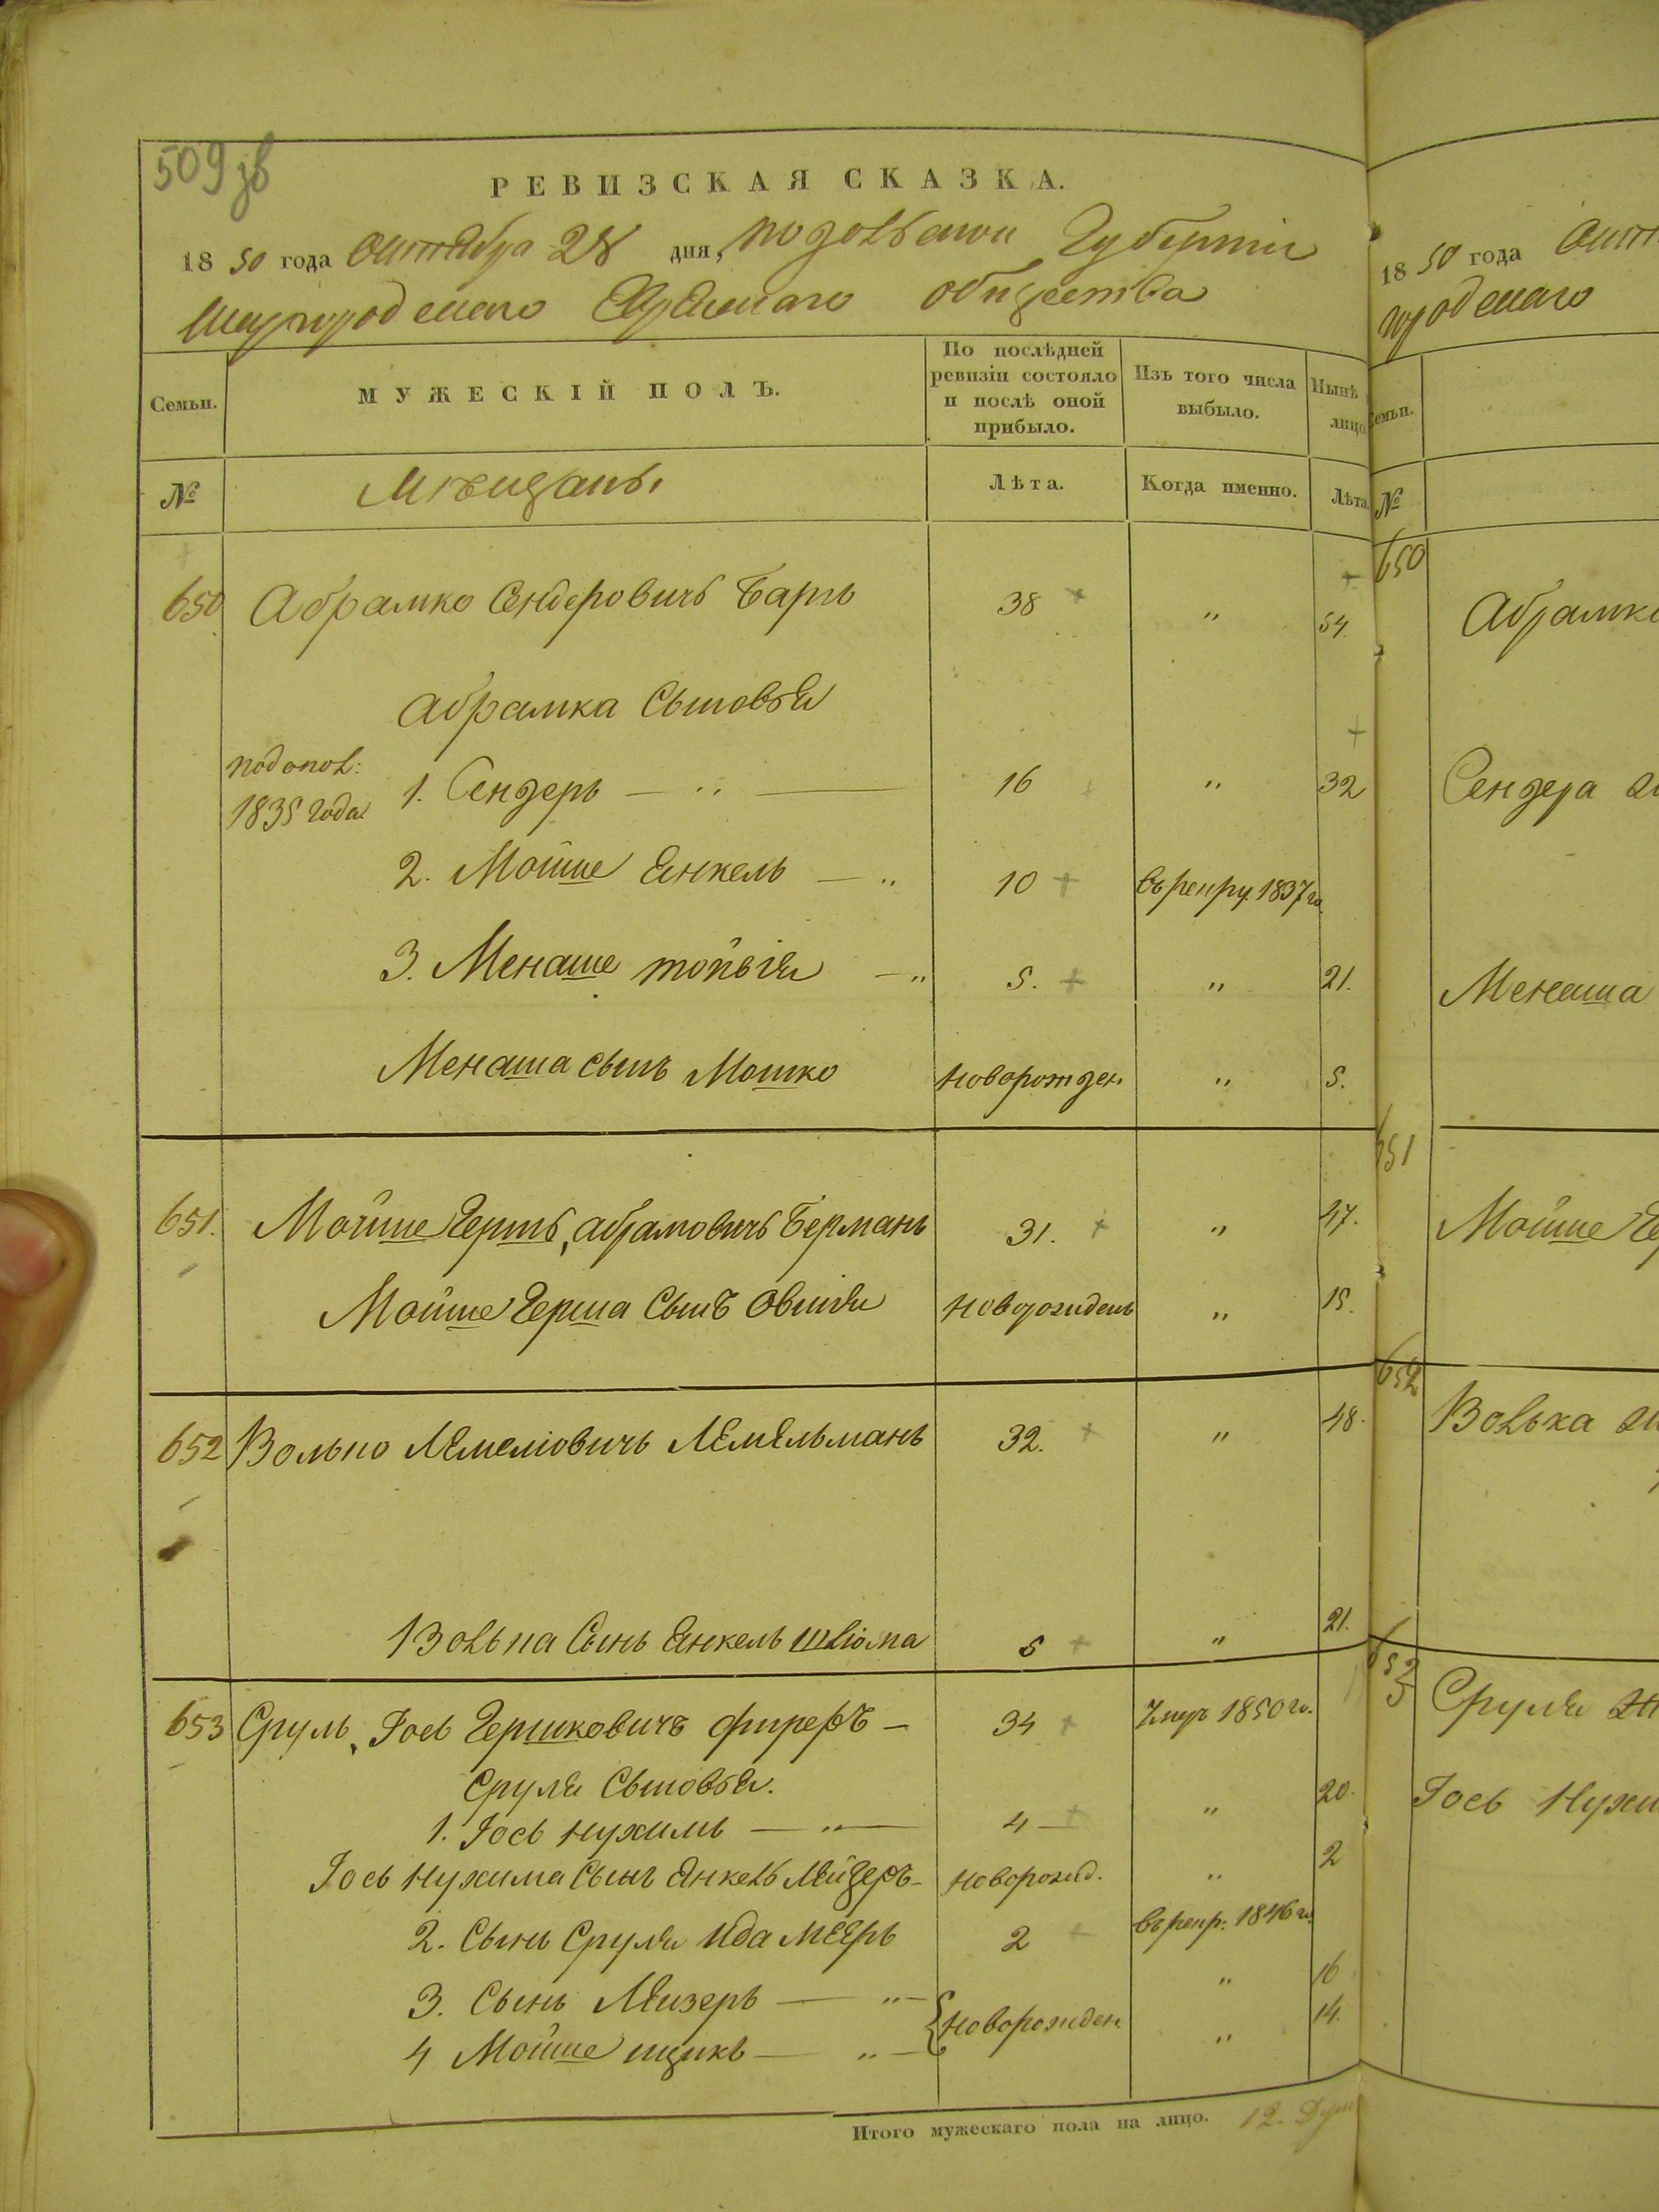 509 зв
РЕВИЗСКАЯ СКАЗКА.
1850 года Октября 28 дня, Подольской Губерніи
Шаргородскаго Еврейскаго общества
Семьи.
МУЖЕСКІЙ ПОЛЪ.
По послѣдней
ревизіи состояло
и послѣ оной
прибыло.
Изъ того числа
выбыло.
Нынѣ
лицо
№
Мѣщанъ.
Лѣта.
Когда именно.
Лѣта
650 Абрамко Сендеровичъ Баръ 38 " 54.
Абрамка Сыновья
под опол:
1835 года
1. Сендеръ — " — 16 " 32
2. Мойше Янкель — " 10 въ рекру 1837 го.
3. Менаше тойвія — " 5. " 21.
Менаша сынъ Мошко Новорожден " 5.
651. Мойше Гершъ, абрамовичъ Берманъ 31. " 47.
Мойше Герша Сынъ Овшія Новорожденъ " 15.
652 Волько Лемеліовичъ Лемельманъ 32. " 48.
Волька Сынъ Янкель шліома 5 " 21.
653 Сруль, Іось Гершковичъ фиреръ — 34 Умеръ 1850 го.
Сруля Сыновья.
1. Іось нухимъ — " — 4 " 20.
Іось Нухима Сынъ Янкель Лейзеръ — Новорожд. " 2
2. Сынъ Сруля Ида Мееръ 2 въ рекр: 1846 го.
3. Сынъ Лейзеръ — " — " 16
{Новорожден
4 Мойше ицикъ — " — " 14.
Итого мужескаго пола на лицо. 12. Душ
1850 года Окт
городскаго
Семьи.
№
650
Абрамк
Сендера
Менаша
651
Мойше Ге
652
Волька
653
Сруля
Іось Нухи